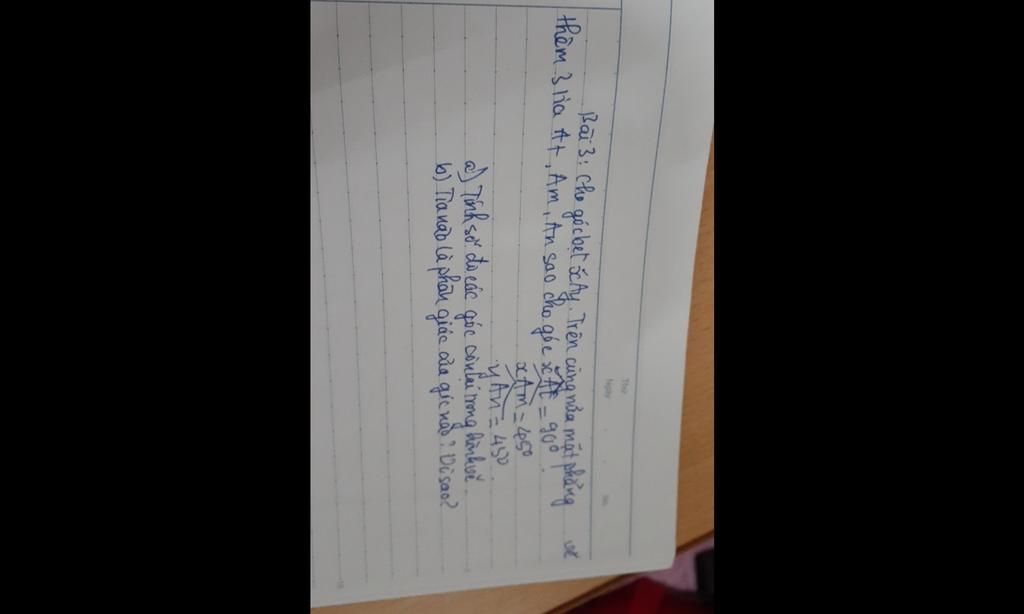 Thứ
Ngày
No.
Bài 3: Cho góc bẹt xAy. Trên cùng nửa mặt phẳng vẽ
thêm 3 tia At, Am, An sao cho góc xAt = 90°
xAm = 45°
yAn = 45°
a) Tính số đo các góc còn lại trong hình vẽ.
b) Tia nào là phân giác của góc nào? Vì sao?